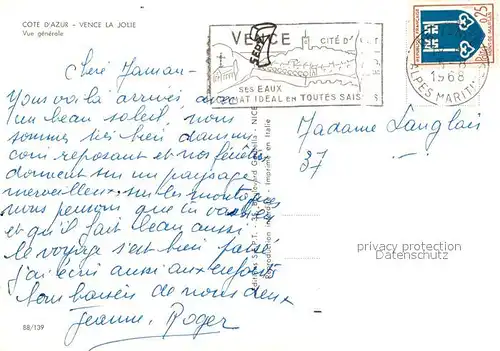 COTE D'AZUR - VENCE LA JOLIE
Vue générale
VENCE CITÉ D'
SES EAUX
IDEAL EN TOUTES SAIS
REPUBLIQUE FRANÇAISE
0,25
1968
ALPES MARIT
Chère Maman -
Nous voilà arrivés avec
un beau soleil, nous
sommes très bien dans un
coin reposant et nos fenêtres
donnent sur un paysage
merveilleux sur les montagnes
nous pensons que tu vas bien
et qu'il fait beau aussi
le voyage s'est bien passé
j'ai écrit aussi aux enfants
bons baisers de nous deux
Jeanne. Roger
Madame Langlais
37
privacy protection
watermark
- NICE
Imprimé en Italie
88/139